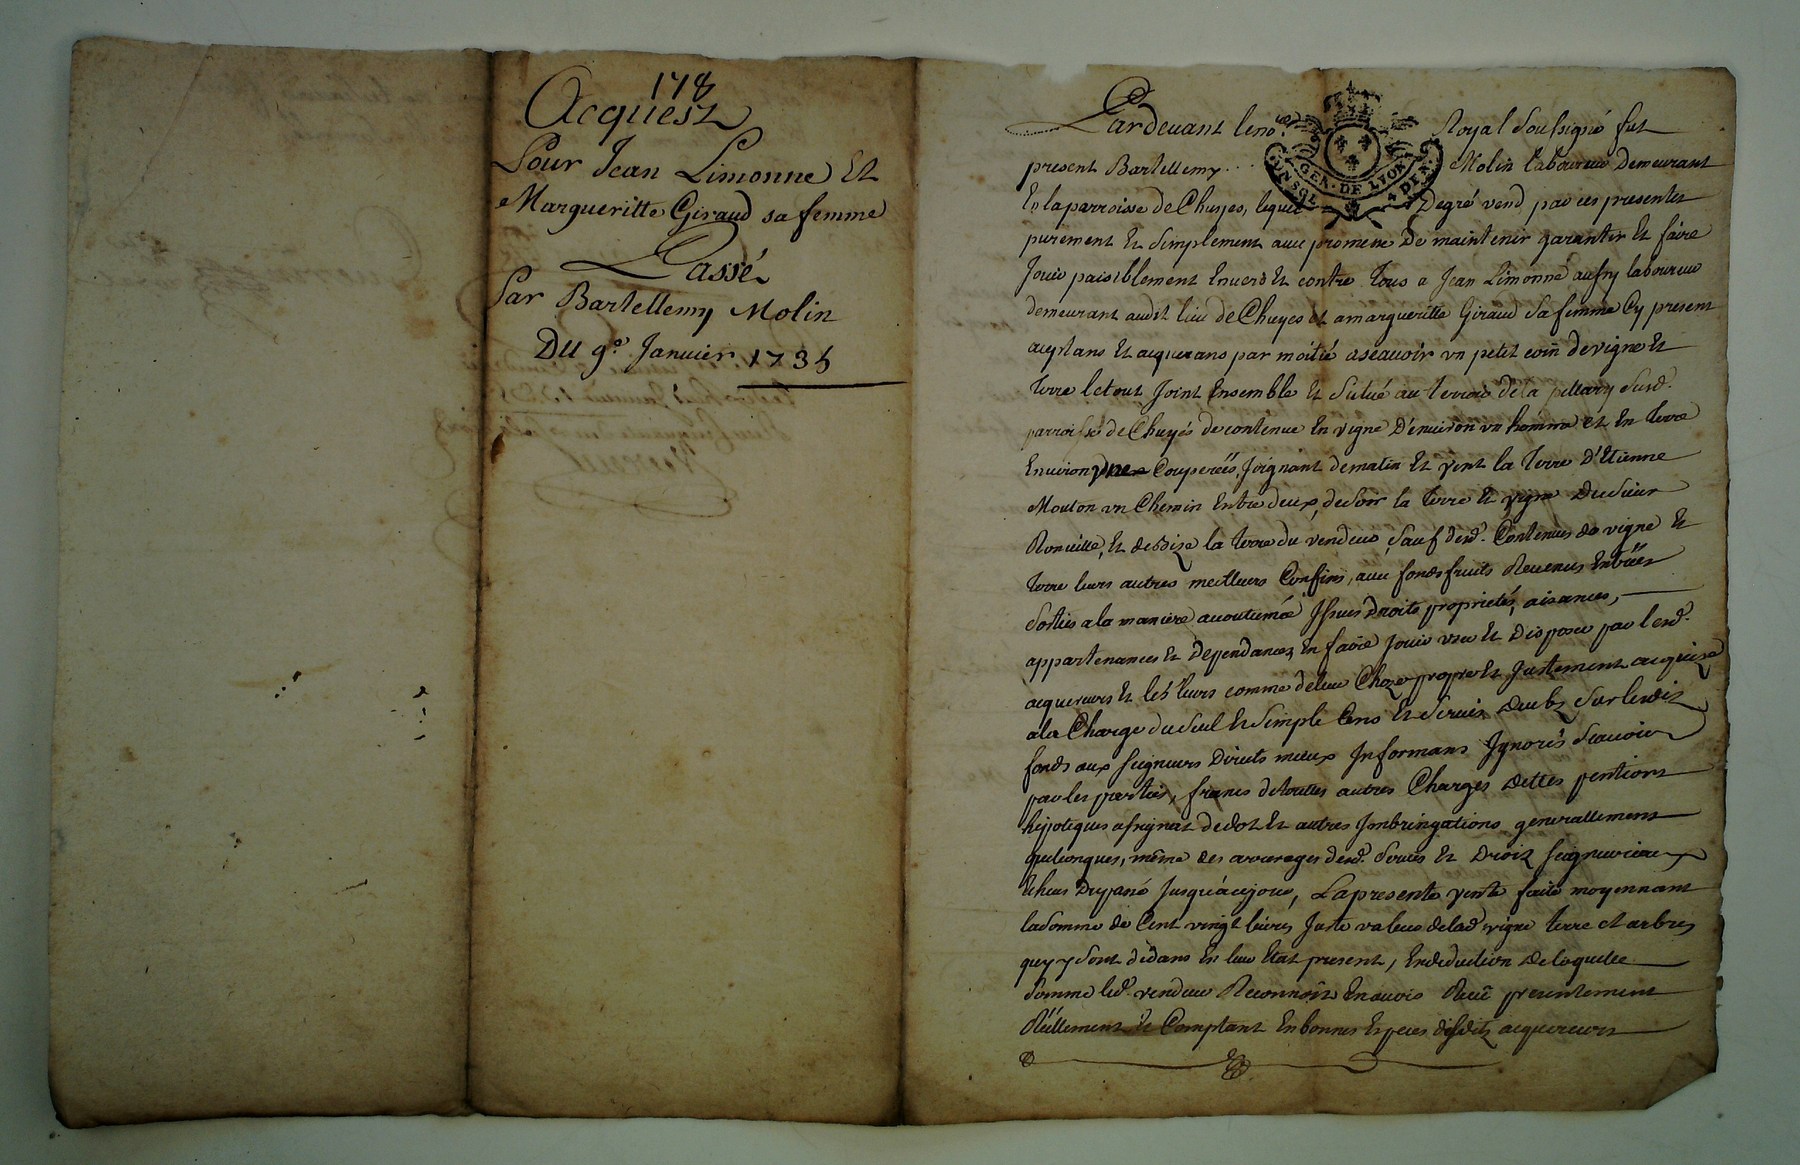 178
Acquest
Pour Jean Limonne Et
Margueritte Giraud sa femme
Passé
Par Bartellemy Molin
Du 9e. Janvier 1735
Pardevant le no.re Royal Soussigné fut
present Bartellemy Molin laboureur Demeurant
GEN. DE LYON
En la parroisse de Chuyes, lequel Degré vend par ces presentes
purement Et Simplement avec promesse De maintenir garantir Et faire
Jouir paisiblement Envers Et contre tous a Jean Limonne aussy laboureur
demeurant audit lieu de Chuyes et a margueritte Giraud Sa femme Cy present
aceptans Et acquerans par moitié ascavoir vn petit coin de vigne Et
terre le tout Joint Ensemble Et Situé au terroir de la pillary Susd.
parroisse de Chuyés de contenue En vigne D'environ vn homme et En terre
Environ Couperées, Joignant de matin Et vent la terre D'Etienne
Mouton vn Chemin Entre deux, de soir la terre Et vigne Du Sieur
Et de Bize la terre du vendeur, Sauf desd. Contenues de vigne Et
terre leurs autres meilleurs Confins, avec fonds fruits Revenus Entrées
Sorties a la maniere accoutumée Issues Droits proprietés, aisances,
appartenances Et Dependances, En faire Jouir vser Et Disposer par lesd.
acquereurs Et les leurs comme de leur Choze propre Et Justement acquize
a la Charge du Seul Et Simple Cens Et Servis Deubz Sur lesdits
fonds aux Seigneurs Directs mieux Informans Ignorés Scavoir
par les parties, francs de touttes autres Charges Dettes pentions
hipoteques assignat de dot Et autres Imbringations generallement
quelconques, même des arrerages desd. Servis Et Droits Seigneuriaux
Echeus Du passé Jusqu'à ce jour, La presente vente faite moyennant
la Somme de Cent vingt livres Juste valeur de lad. vigne terre et arbres
quy y Sont dedans En leur Etat present, En deduction de laquelle
Somme led. vendeur Reconnoit En avoir Receu presentement
Réellement Et Comptant En bonnes Especes desdits acquereurs